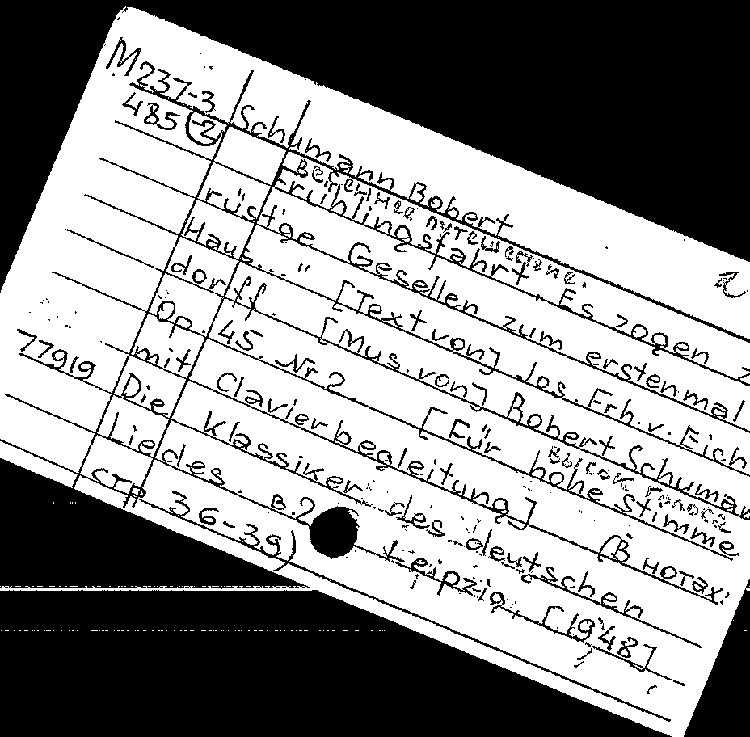 M237-3
485 (-2)
Schumann Robert
Весеннее путешествие.
Frühlingsfahrt. Es zogen
rüst'ge Gesellen zum erstenmal
Haus..." [Text von] Jos. Frh. v. Eich
dorff. [Mus. von] Robert Schuman
Op. 45. Nr 2. [Für hohe Stimme
высок голоса
mit Clavierbegleitung] (В нотах:
77919
Die Klassiker des deutschen
Liedes. B.2 Leipzig, [1948]
стр 36-39)